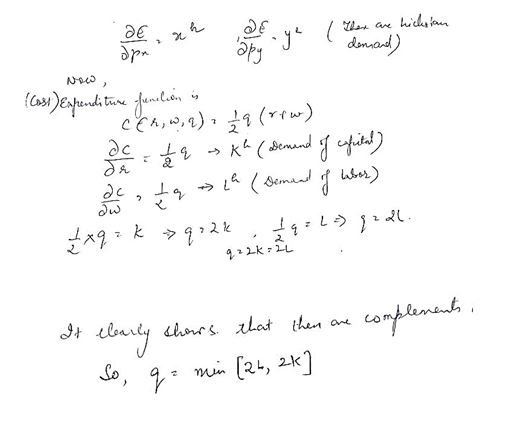 ∂E/∂px = x^h , ∂E/∂py = y^h ( These are hicksian demand)
Now,
(Cost) Expenditure function is
C(r, w, q) = 1/2 q (r+w)
∂C/∂r = 1/2 q → K^h (Demand of capital)
∂C/∂w = 1/2 q → L^h (Demand of labor)
1/2 × q = K ⇒ q = 2K , 1/2 q = L ⇒ q = 2L.
q = 2K = 2L
It clearly shows that then are complements.
So, q = min [2L, 2K]